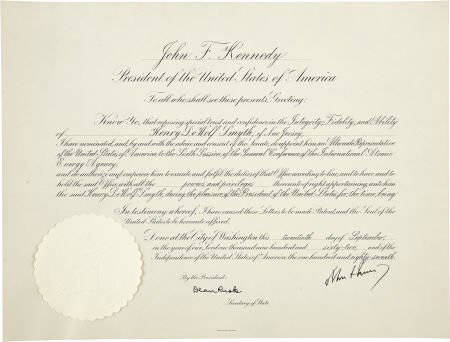 John F. Kennedy
President of the United States of America
To all who shall see these presents, Greeting:
Know Ye, that reposing special trust and confidence in the Integrity, Fidelity, and Ability
of Henry DeWolf Smyth, of New Jersey,
I have nominated, and, by and with the advice and consent of the Senate, do appoint him an Alternate Representative
of the United States of America to the Sixth Session of the General Conference of the International Atomic
Energy Agency,
and do authorize and empower him to execute and fulfil the duties of that Office according to law, and to have and to
hold the said Office, with all the powers and privileges thereunto of right appertaining unto him
the said Henry DeWolf Smyth, during the pleasure of the President of the United States for the time being.
In testimony whereof, I have caused these Letters to be made Patent, and the Seal of the
United States to be hereunto affixed.
Done at the City of Washington this twentieth day of September,
in the year of our Lord one thousand nine hundred and sixty-two, and of the
Independence of the United States of America the one hundred and eighty-seventh.
By the President:
Dean Rusk
Secretary of State